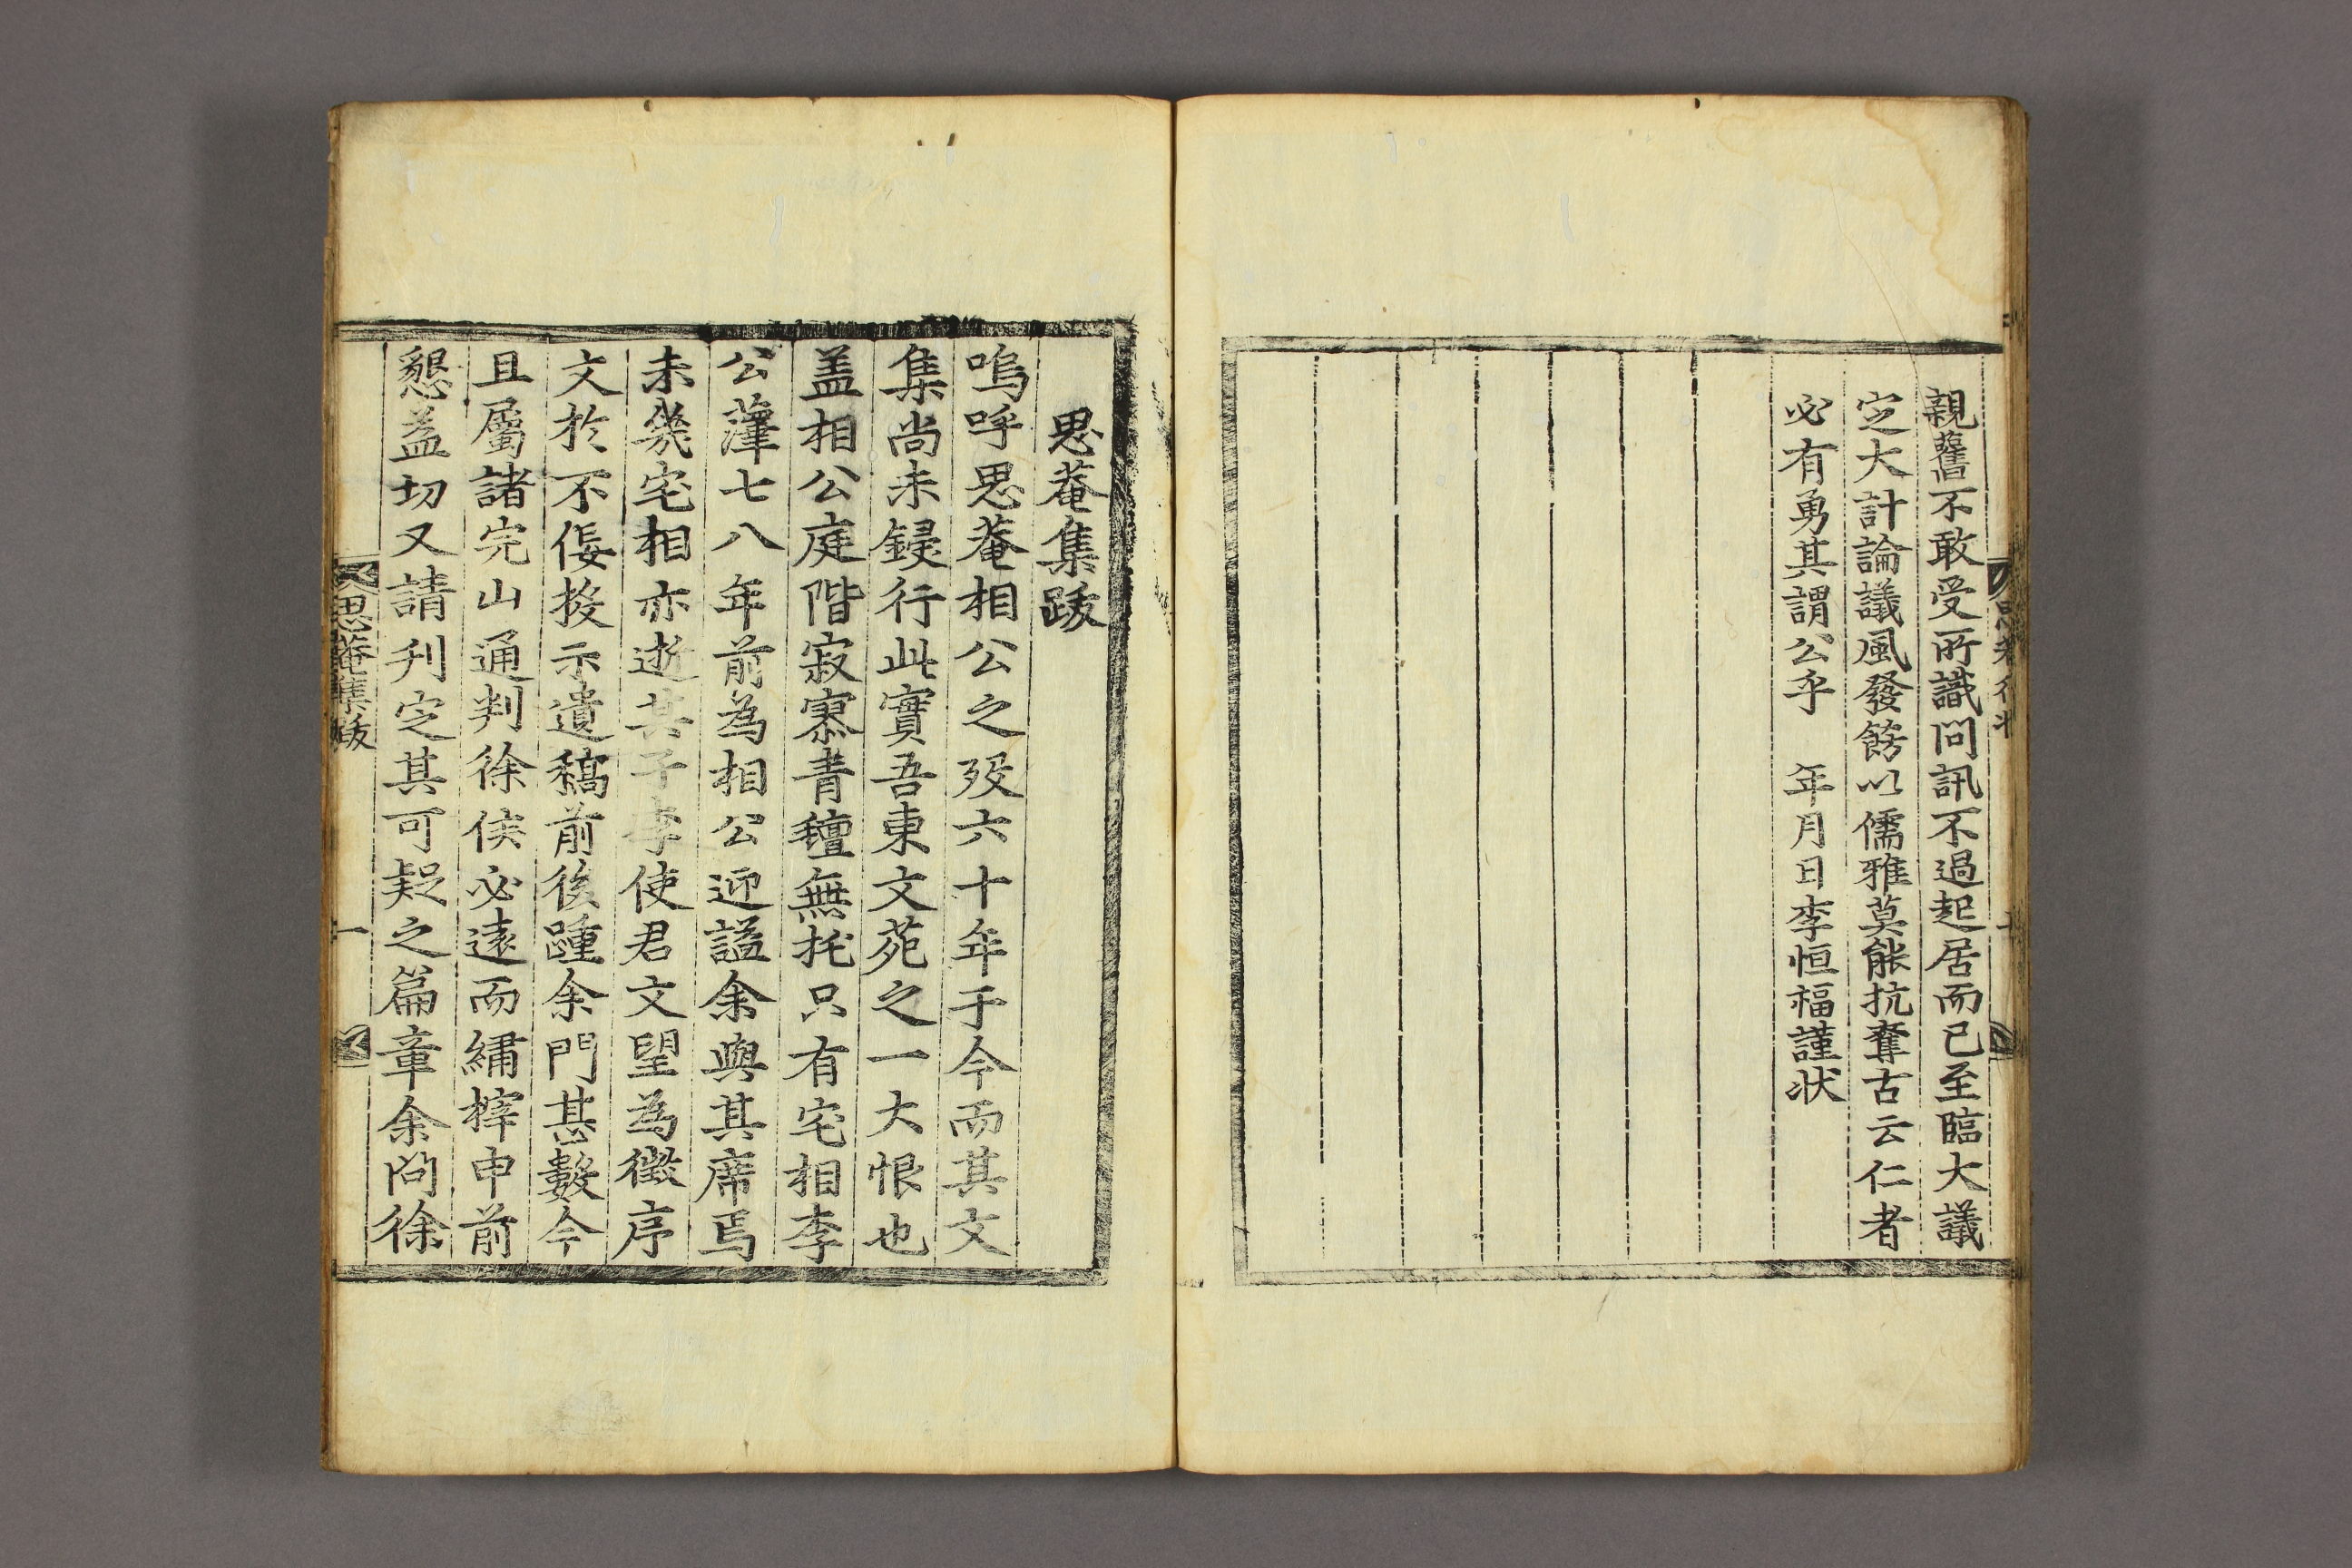 親舊不敢受所識問訊不過起居而已至臨大議
定大計論議風發餝以儒雅莫能抗奪古云仁者
必有勇其謂公乎　年月日李恒福謹狀
思菴集跋
嗚呼思菴相公之歿六十年于今而其文
集尚未鋟行此實吾東文苑之一大恨也
盖相公庭階寂寞青氊無托只有宅相李
公㵓七八年前為相公迎諡余與其席焉
未幾宅相亦逝其子李使君文望為徵序
文於不佞投示遺稿前後踵余門甚數今
且屬諸完山通判徐侯必遠而繡梓申前
懇益切又請刋定其可疑之篇章余問徐
思菴集跋
一